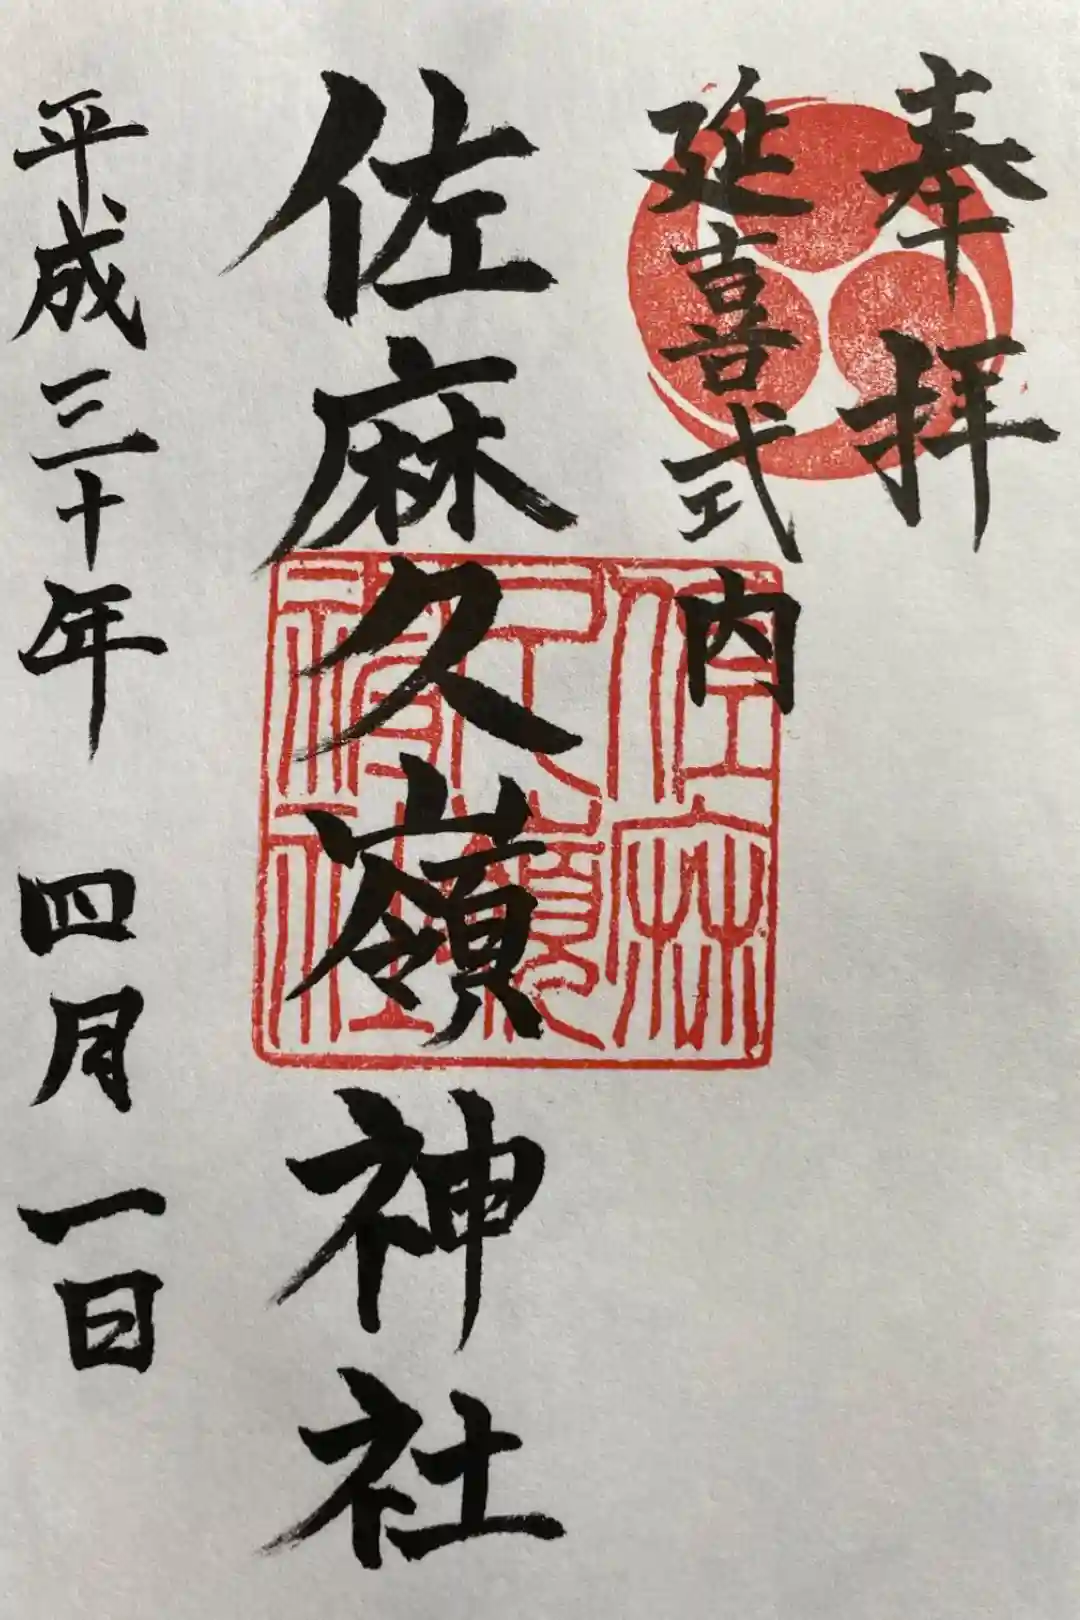 奉拝
延喜式内
佐麻久嶺神社
平成三十年 四月一日
佐麻久嶺神社